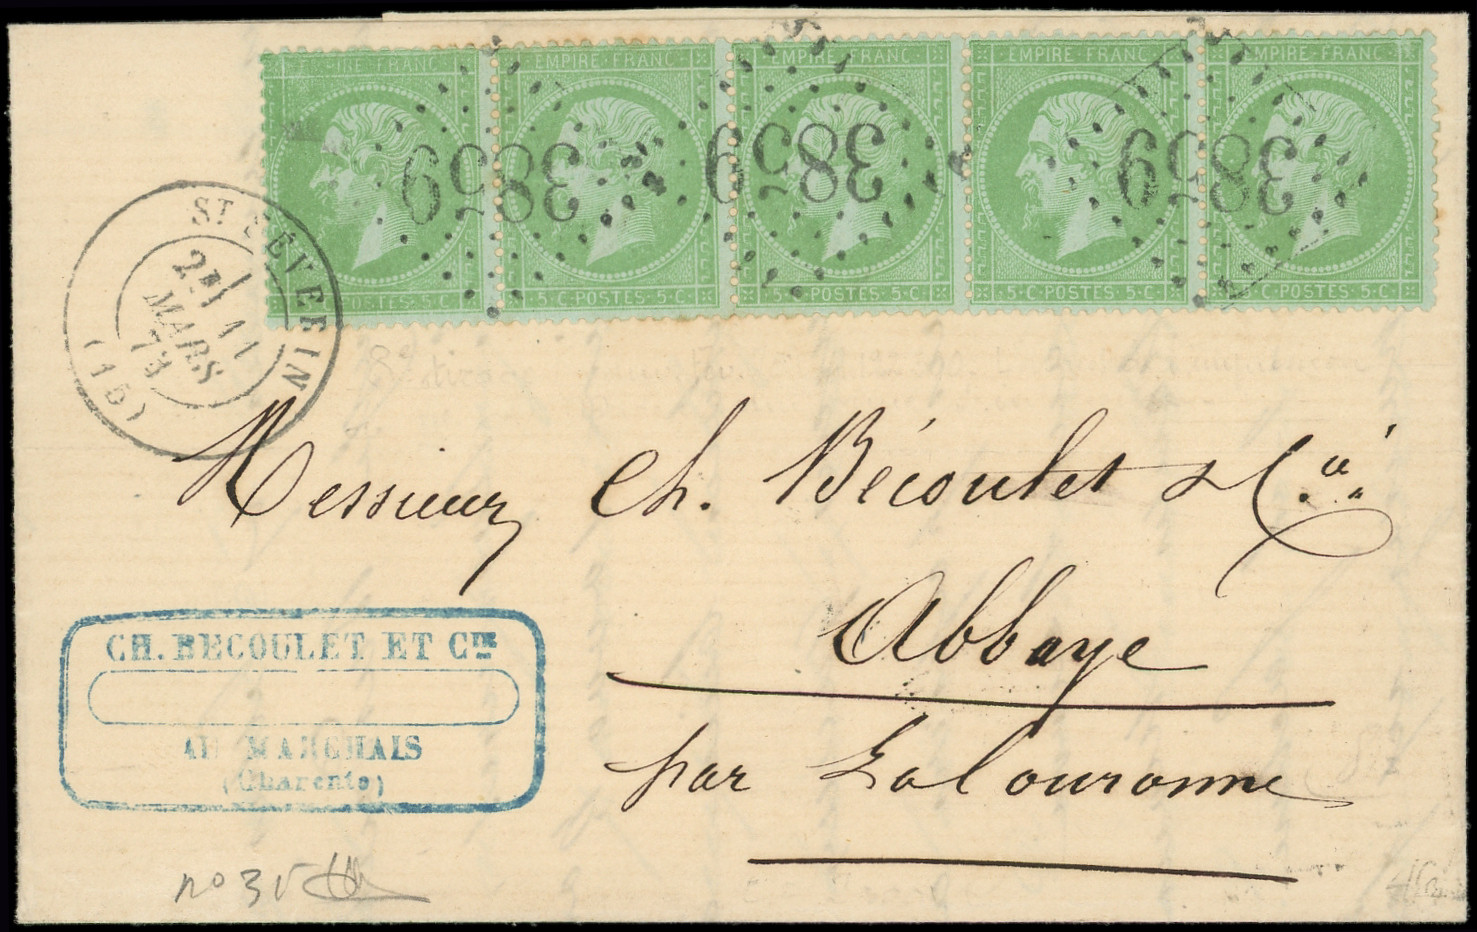 EMPIRE FRANC EMPIRE·FRANC EMPIRE·FRANC EMPIRE FRANC EMPIRE FRANC
3859 3859 3859
POSTES·5·C 5·C·POSTES·5·C 5·C·POSTES·5·C 5·C·POSTES·5·C 5·C·POSTES·5·C
ST SÉVERIN
MARS
73
(15)
Messieurs Ch. Bécoulet & Cie
Abbaye
par LaCouronne
CH. BECOULET ET CIE
AU MARCHAIS
(Charente)
no 35